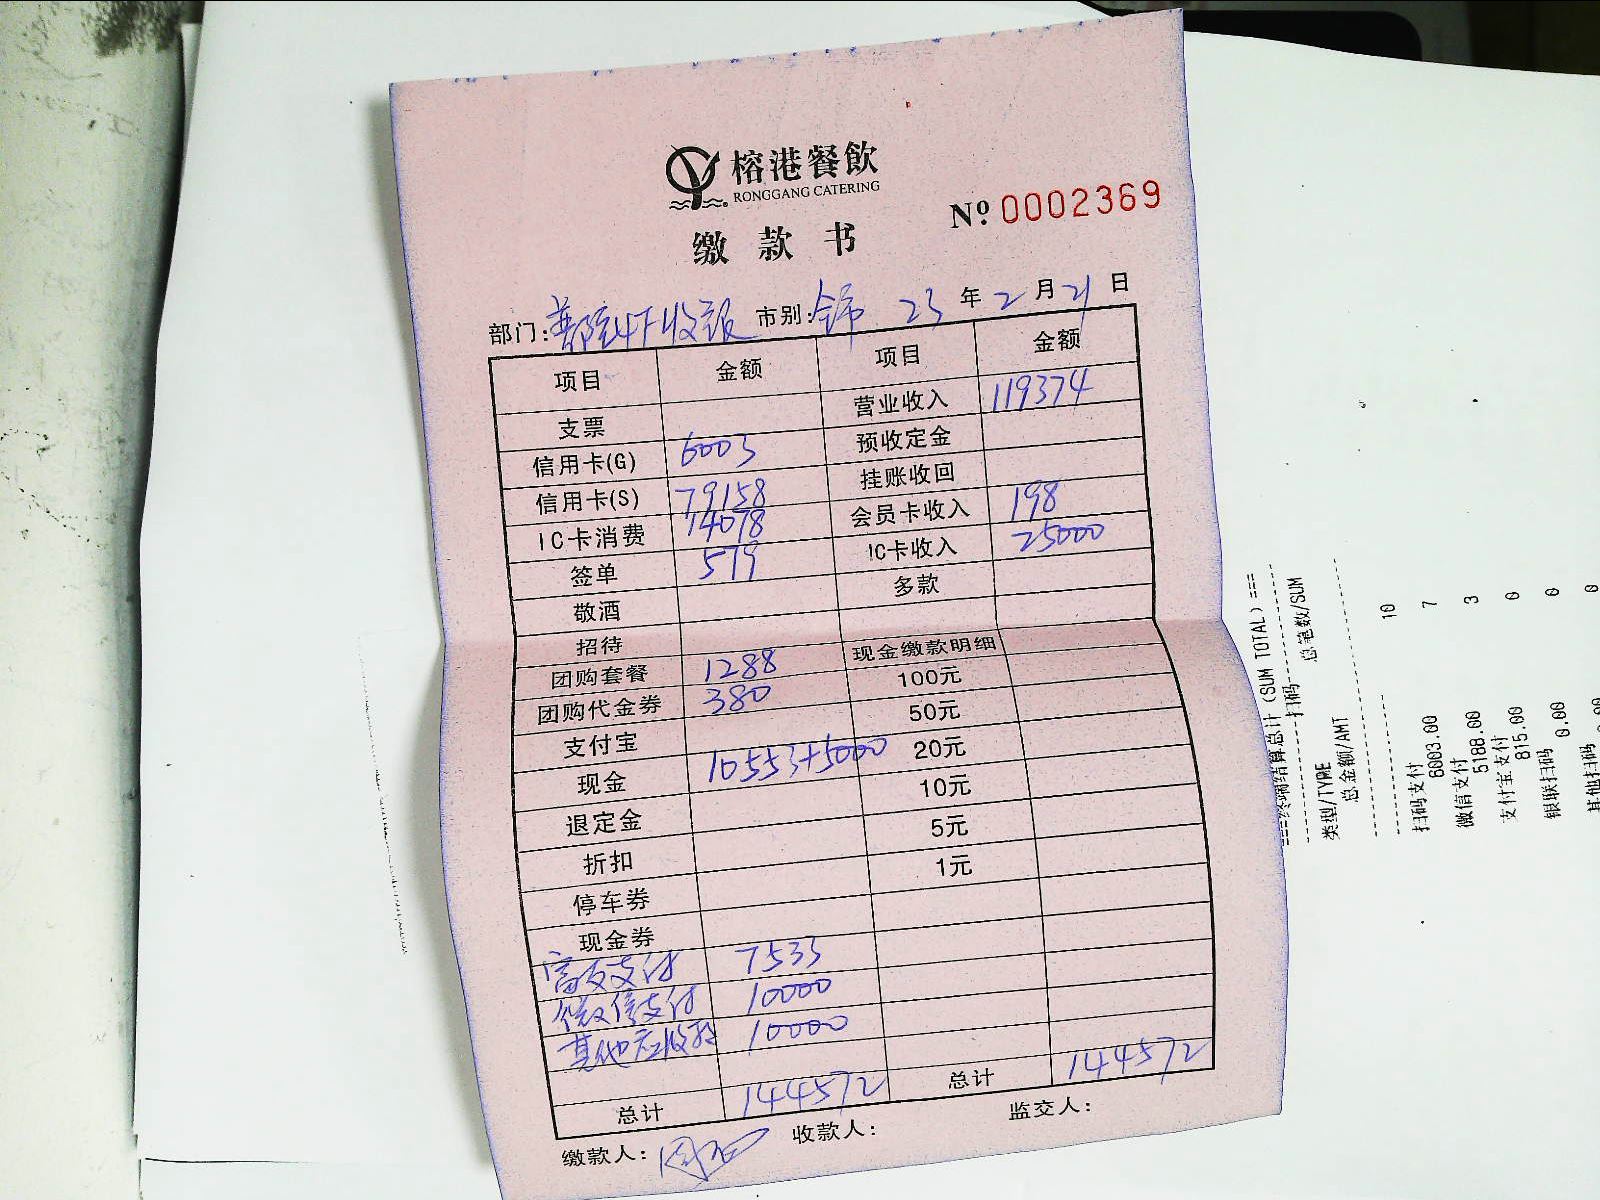 榕港餐飲
RONGGANG CATERING
缴款书
Nº 0002369
部门: 收银 市别: 全市 23年2月21日
项目 金额 项目 金额
支票 营业收入 119374
信用卡(G) 6003 预收定金
信用卡(S) 79158 挂账收回
IC卡消费 14078 会员卡收入 198
签单 579 IC卡收入 25000
敬酒 多款
招待 现金缴款明细
团购套餐 1288 100元
团购代金券 380 50元
支付宝 20元
现金 10553+5000 10元
退定金 5元
折扣 1元
停车券
现金券
支付 7533
微信支付 10000
其他应收款 10000
总计 144572 总计 144572
缴款人: 收款人: 监交人:
===终端结算总计(SUM TOTAL)===
扫码
类型/TYPE 总笔数/SUM
总金额/AMT
扫码支付 10
6003.00
微信支付 7
5188.00
支付宝支付 3
815.00
银联扫码 0
0.00
其他扫码 0